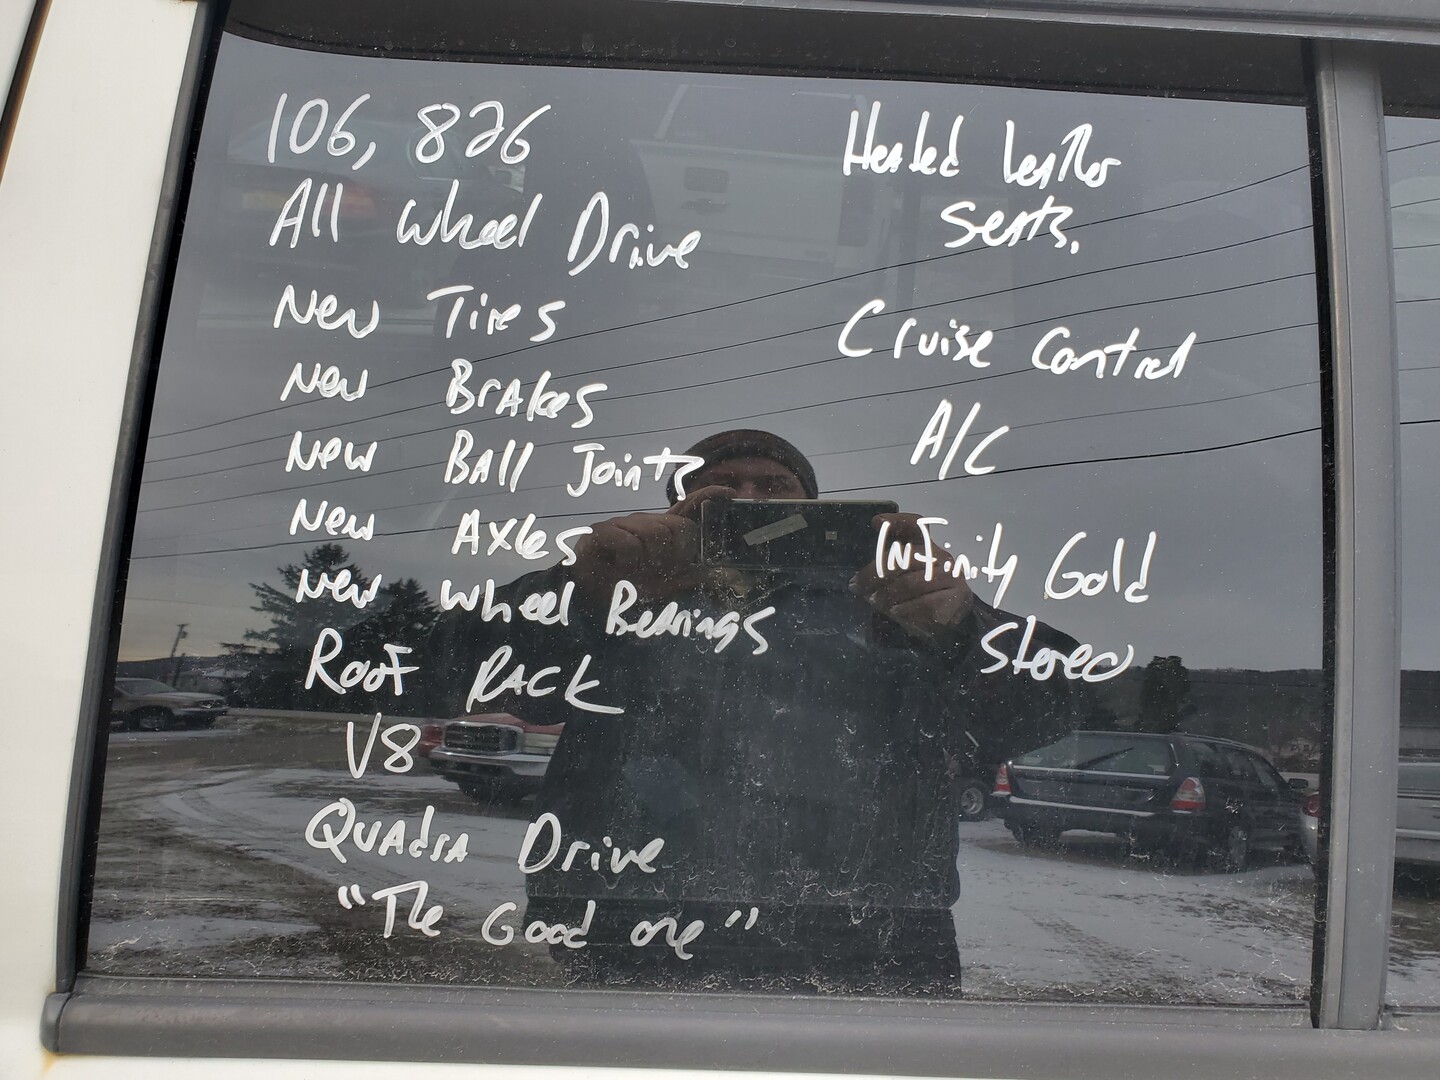 106,826
All Wheel Drive
New Tires
New Brakes
New Ball Joints
New Axles
New Wheel Bearings
Roof Rack
V8
Quadra Drive
"The Good one"
Heated Leather
Seats.
Cruise Control
A/C
Infinity Gold
Stereo